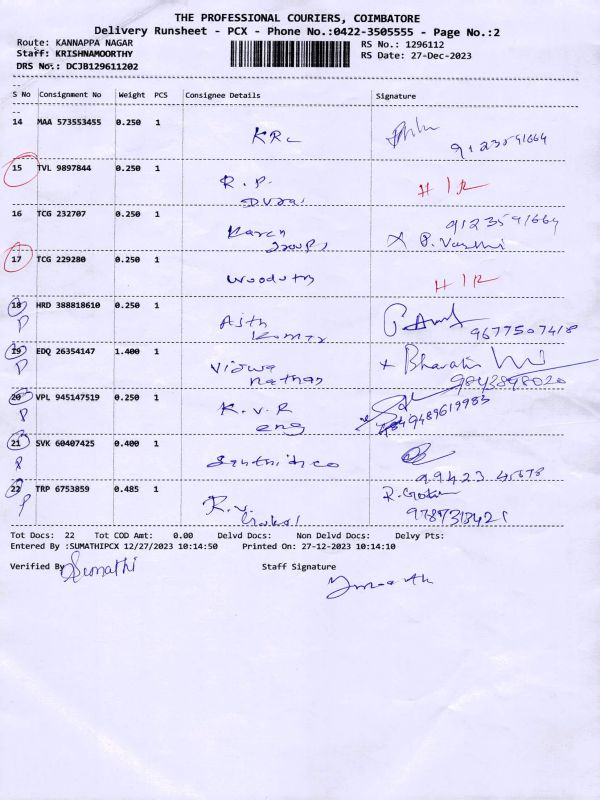 THE PROFESSIONAL COURIERS, COIMBATORE
Delivery Runsheet - PCX - Phone No.:0422-3505555 - Page No.:2
Route: KANNAPPA NAGAR RS No.: 1296112
Staff: KRISHNAMOORTHY RS Date: 27-Dec-2023
DRS No.: DCJB129611202
S No Consignment No Weight PCS Consignee Details Signature
14 MAA 573553455 0.250 1 KRC
9123591664
15 TVL 9897844 0.250 1 R.P. HIR
16 TCG 232707 0.250 1 9123591664
P. Vasthi
17 TCG 229280 0.250 1 HIR
18 HRD 388818610 0.250 1 Ajth
P Kumar 9677507418
19 EDQ 26354147 1.400 1 Viswa x Bharathi
P nathan 9843898020
20 VPL 945147519 0.250 1 K.V.R
P eng 9489619983
21 SVK 60407425 0.400 1
P 99423 45678
22 TRP 6753859 0.485 1 R.V.
P Gokul
Tot Docs: 22 Tot COD Amt: 0.00 Delvd Docs: Non Delvd Docs: Delvy Pts:
Entered By :SUMATHIPCX 12/27/2023 10:14:50 Printed On: 27-12-2023 10:14:10
Verified By Sumathi Staff Signature